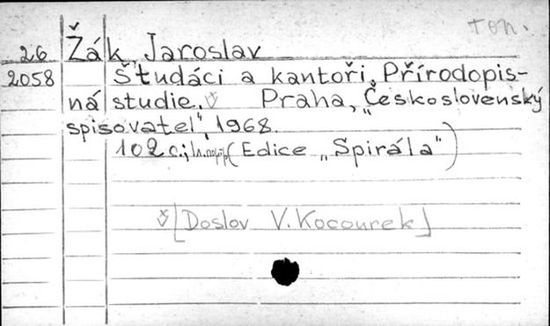 Ton.
26 Žák, Jaroslav
2058 Študáci a kantoři, Přírodopis-
ná studie. Praha, "Československý
spisovatel", 1968.
102 c.; (Edice „Spirála")
[Doslov V. Kocourek]